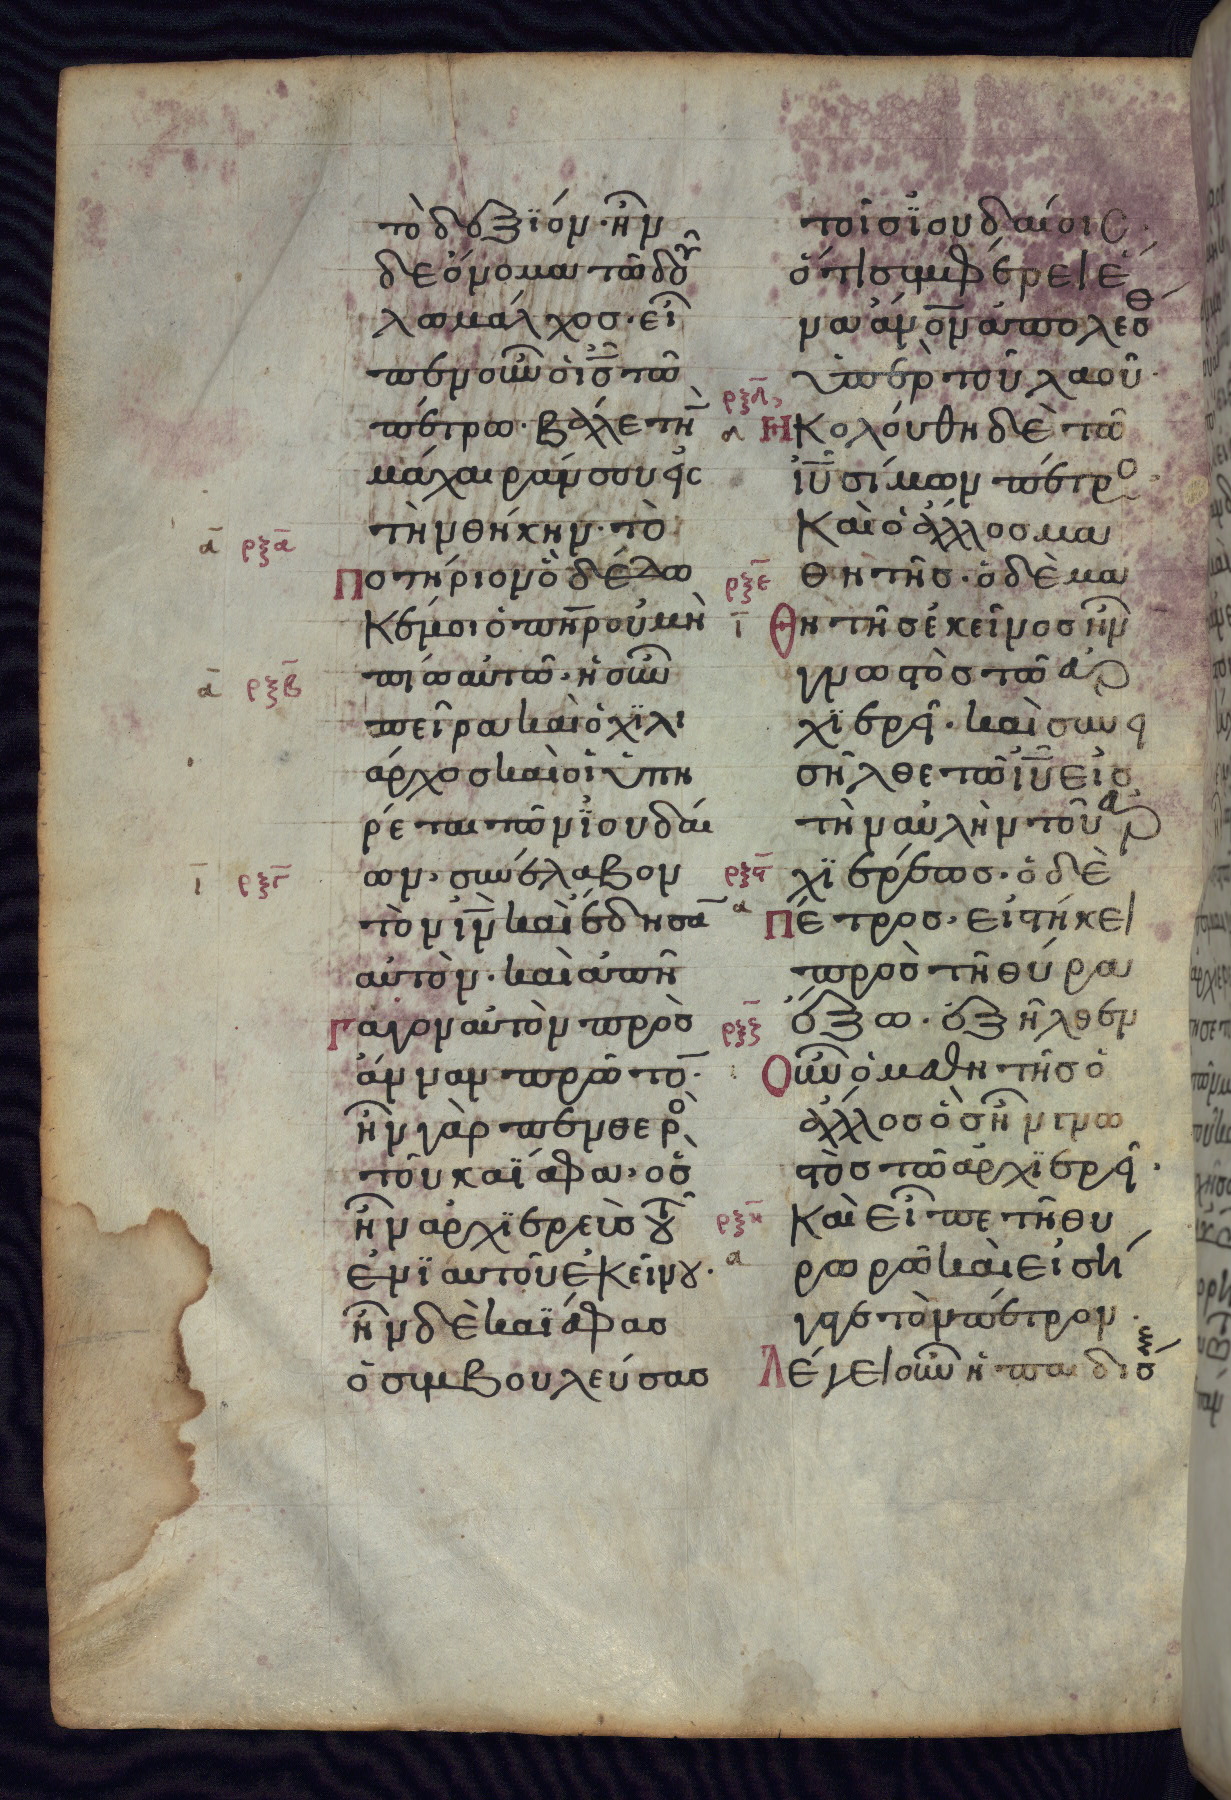 τὸ δεξϊόν· ἦν
δὲ ὄνομα τῶ δού
λω μάλχος· εἶ
πεν οὖν ὁ ις̅ τῶ
πέτρω· βάλε τὴ̅
μάχαιράν σου εἰς
τὴν θήκην· τὸ
α̅ ρξα̅
Ποτήριον ὃ δέδω
κέν μοι ὁ πη̅ρ οὐ μὴ
πίω αὐτῶ· ἡ οὖν
α̅ ρξβ̅
σπεῖρα καὶ ὁ χϊλί
αρχος καὶ οἱ ὑπη
ρέται τῶν ϊουδαί
ων· συνέλαβον
ι̅ ρξγ̅
τὸν ιν̅ καὶ ἔδησα̅
αὐτὸν· καὶ ἀπή
Γαγον αὐτὸν πρὸς
ἄνναν πρῶτο̅·
ἦν γὰρ πενθερὸ
τοῦ καϊάφα· ὃς
ἦν ἀρχϊερεὺς τοῦ
ἐνϊαυτοῦ ἐκείνου·
ἦν δὲ καϊάφας
ὁ συμβουλεύσας
τοῖς ϊουδαίοις
ὅτι συμφέρει ἕ
να ἄνο̅ν ἀπολέσθ
ὑπὲρ τοῦ λαοῦ·
ρξδ̅
α Ηκολούθη δὲ τῶ
ιυ̅ σίμων πέτρο
καὶ ὁ ἄλλος μα
θητής· ὁ δὲ μα
ρξε̅
ι̅ Θητὴς ἐκεῖνος ἦν
γνωστὸς τῶ ἀρ
χϊερεῖ· καὶ συνει
σῆλθε τῶ ιυ̅ εἰς
τὴν αὐλὴν τοῦ ἀρ
χϊερέως· ὁ δὲ
ρξϛ̅
α Πέτρος· εἱστήκει
πρὸς τῆ θύρα
ἔξω· ἐξῆλθεν
ρξζ̅
Οὖν ὁ μαθητὴς ὁ
ἄλλος ὃς ἦν γνω
στὸς τῶ ἀρχϊερεῖ·
καὶ εἶπε τῆ θυ
ρξη̅
α
ρωρῶ καὶ εἰσή
γαγε τὸν πέτρον·
Λέγει οὖν ἡ παιδίσ